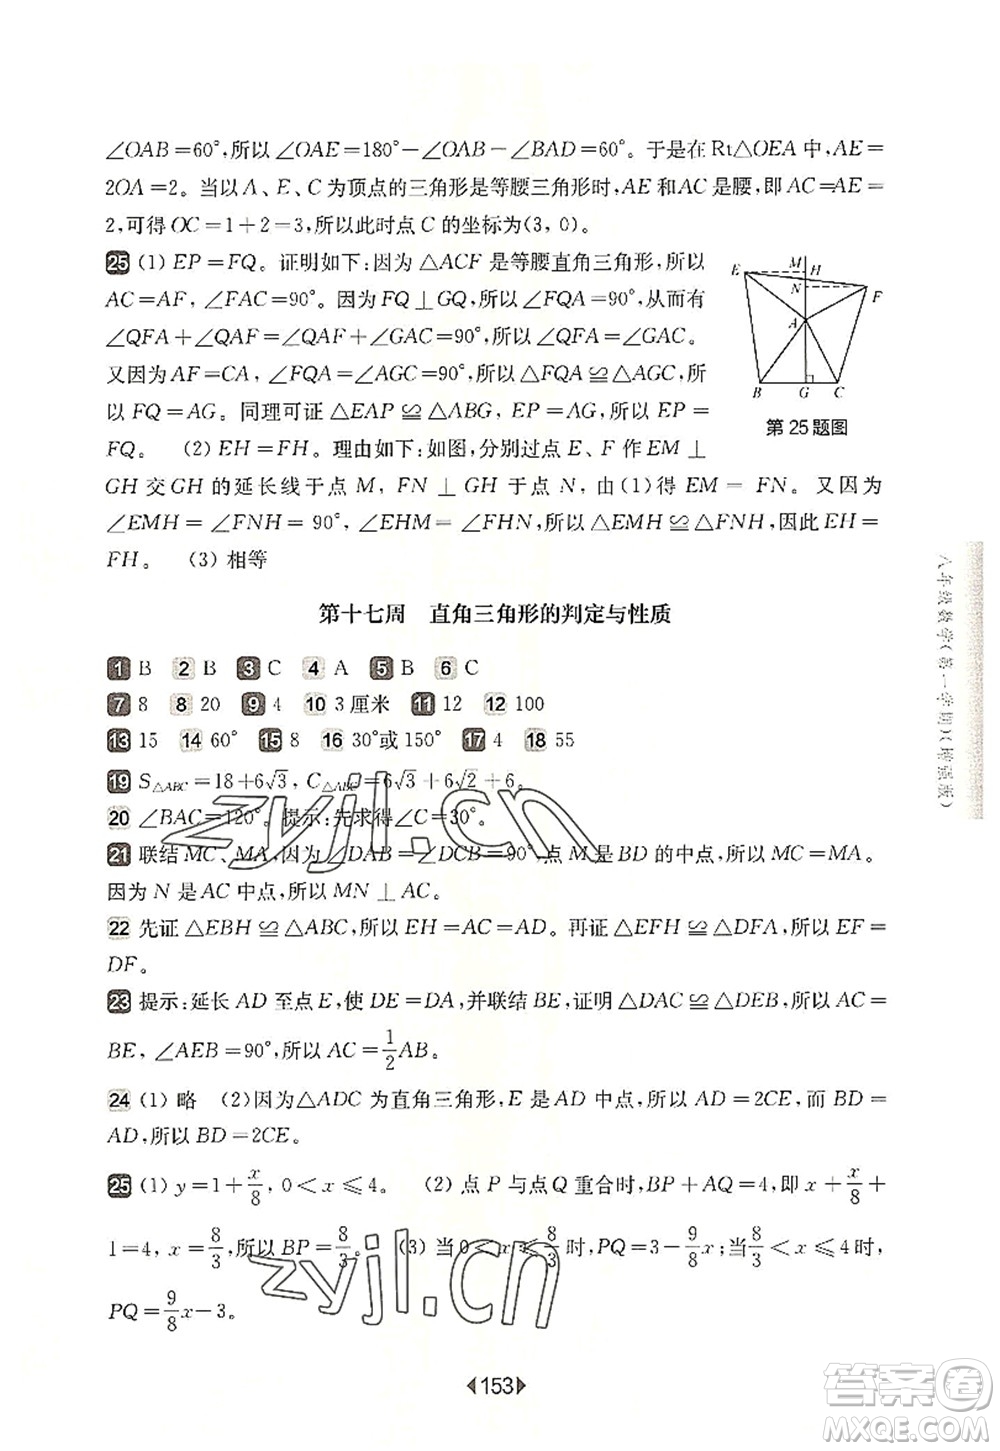 ∠OAB=60°,所以∠OAE=180°-∠OAB-∠BAD=60°。于是在Rt△OEA中,AE=
2OA=2。当以A、E、C为顶点的三角形是等腰三角形时,AE和AC是腰,即AC=AE=
2,可得OC=1+2=3,所以此时点C的坐标为(3,0)。
25 (1) EP=FQ。证明如下:因为△ACF是等腰直角三角形,所以
AC=AF,∠FAC=90°。因为FQ⊥GQ,所以∠FQA=90°,从而有
∠QFA+∠QAF=∠QAF+∠GAC=90°,所以∠QFA=∠GAC。
又因为AF=CA,∠FQA=∠AGC=90°,所以△FQA≌△AGC,所
以FQ=AG。同理可证△EAP≌△ABG,EP=AG,所以EP=
FQ。 (2) EH=FH。理由如下:如图,分别过点E、F作EM⊥
GH交GH的延长线于点M,FN⊥GH于点N,由(1)得EM=FN。又因为
∠EMH=∠FNH=90°,∠EHM=∠FHN,所以△EMH≌△FNH,因此EH=
FH。 (3) 相等
E
M
H
N
F
A
B
G
C
第25题图
第十七周 直角三角形的判定与性质
1 B 2 B 3 C 4 A 5 B 6 C
7 8 8 20 9 4 10 3厘米 11 12 12 100
13 15 14 60° 15 8 16 30°或150° 17 4 18 55
19 S△ABC=18+6√3,C△ABC=6√3+6√2+6。
20 ∠BAC=120°。提示:先求得∠C=30°。
21 联结MC、MA,因为∠DAB=∠DCB=90°,点M是BD的中点,所以MC=MA。
因为N是AC中点,所以MN⊥AC。
22 先证△EBH≌△ABC,所以EH=AC=AD。再证△EFH≌△DFA,所以EF=
DF。
23 提示:延长AD至点E,使DE=DA,并联结BE,证明△DAC≌△DEB,所以AC=
BE,∠AEB=90°,所以AC=1/2AB。
24 (1) 略 (2)因为△ADC为直角三角形,E是AD中点,所以AD=2CE,而BD=
AD,所以BD=2CE。
25 (1) y=1+x/8,0<x≤4。 (2) 点P与点Q重合时,BP+AQ=4,即x+x/8+
1=4,x=8/3,所以BP=8/3。 (3) 当0<x≤8/3时,PQ=3-9/8x;当8/3<x≤4时,
PQ=9/8x-3。
八年级数学(第一学期)(增强版)
153
zyjl.cn
zyjl.cn
答案圈
MXQE.COM